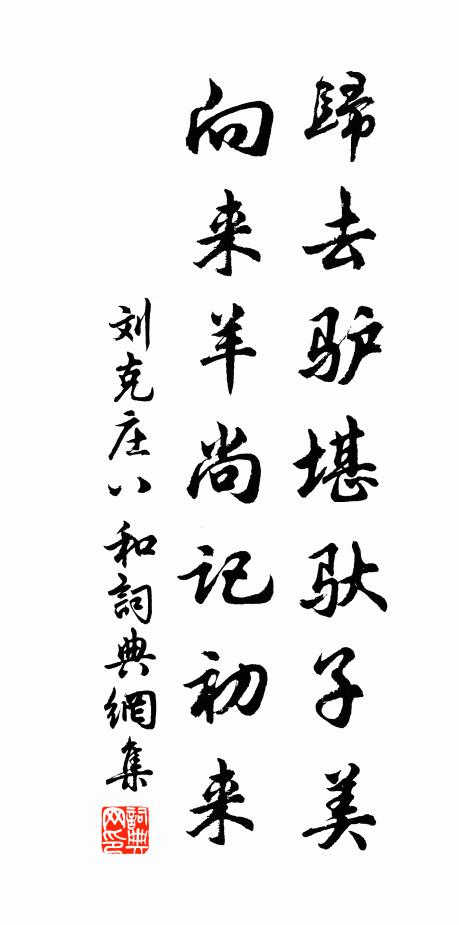 歸去驴堪驮子美
向来羊尚记初来
刘克庄八和詞典網集
詞典网印